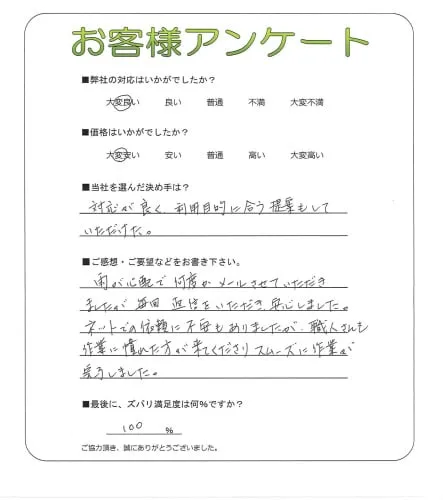 お客様アンケート
■弊社の対応はいかがでしたか?
大変良い 良い 普通 不満 大変不満
■価格はいかがでしたか?
大変安い 安い 普通 高い 大変高い
■当社を選んだ決め手は?
対応が良く、利用目的に合う提案もして
いただけた。
■ご感想・ご要望などをお書き下さい。
雨が心配で何度かメールさせていただき
ましたが毎回返信をいただき、安心しました。
ネットでの依頼に不安もありましたが、職人さんも
作業に慣れた方が来てくださりスムーズに作業が
完了しました。
■最後に、ズバリ満足度は何%ですか?
100 %
ご協力頂き、誠にありがとうございました。